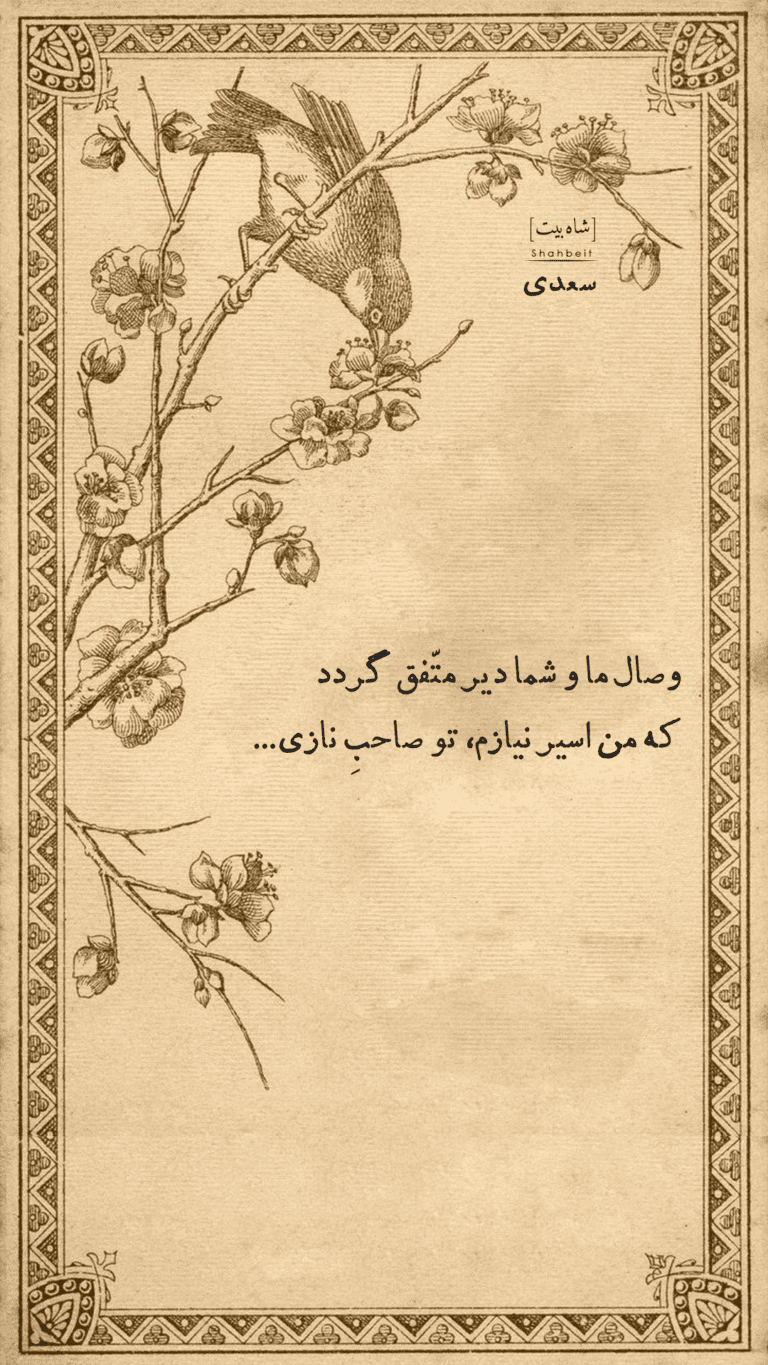 [شاه بیت]
Shahbeit
سعدی
وصال ما و شما دیر متّفق گردد
که من اسیر نیازم، تو صاحبِ نازی...